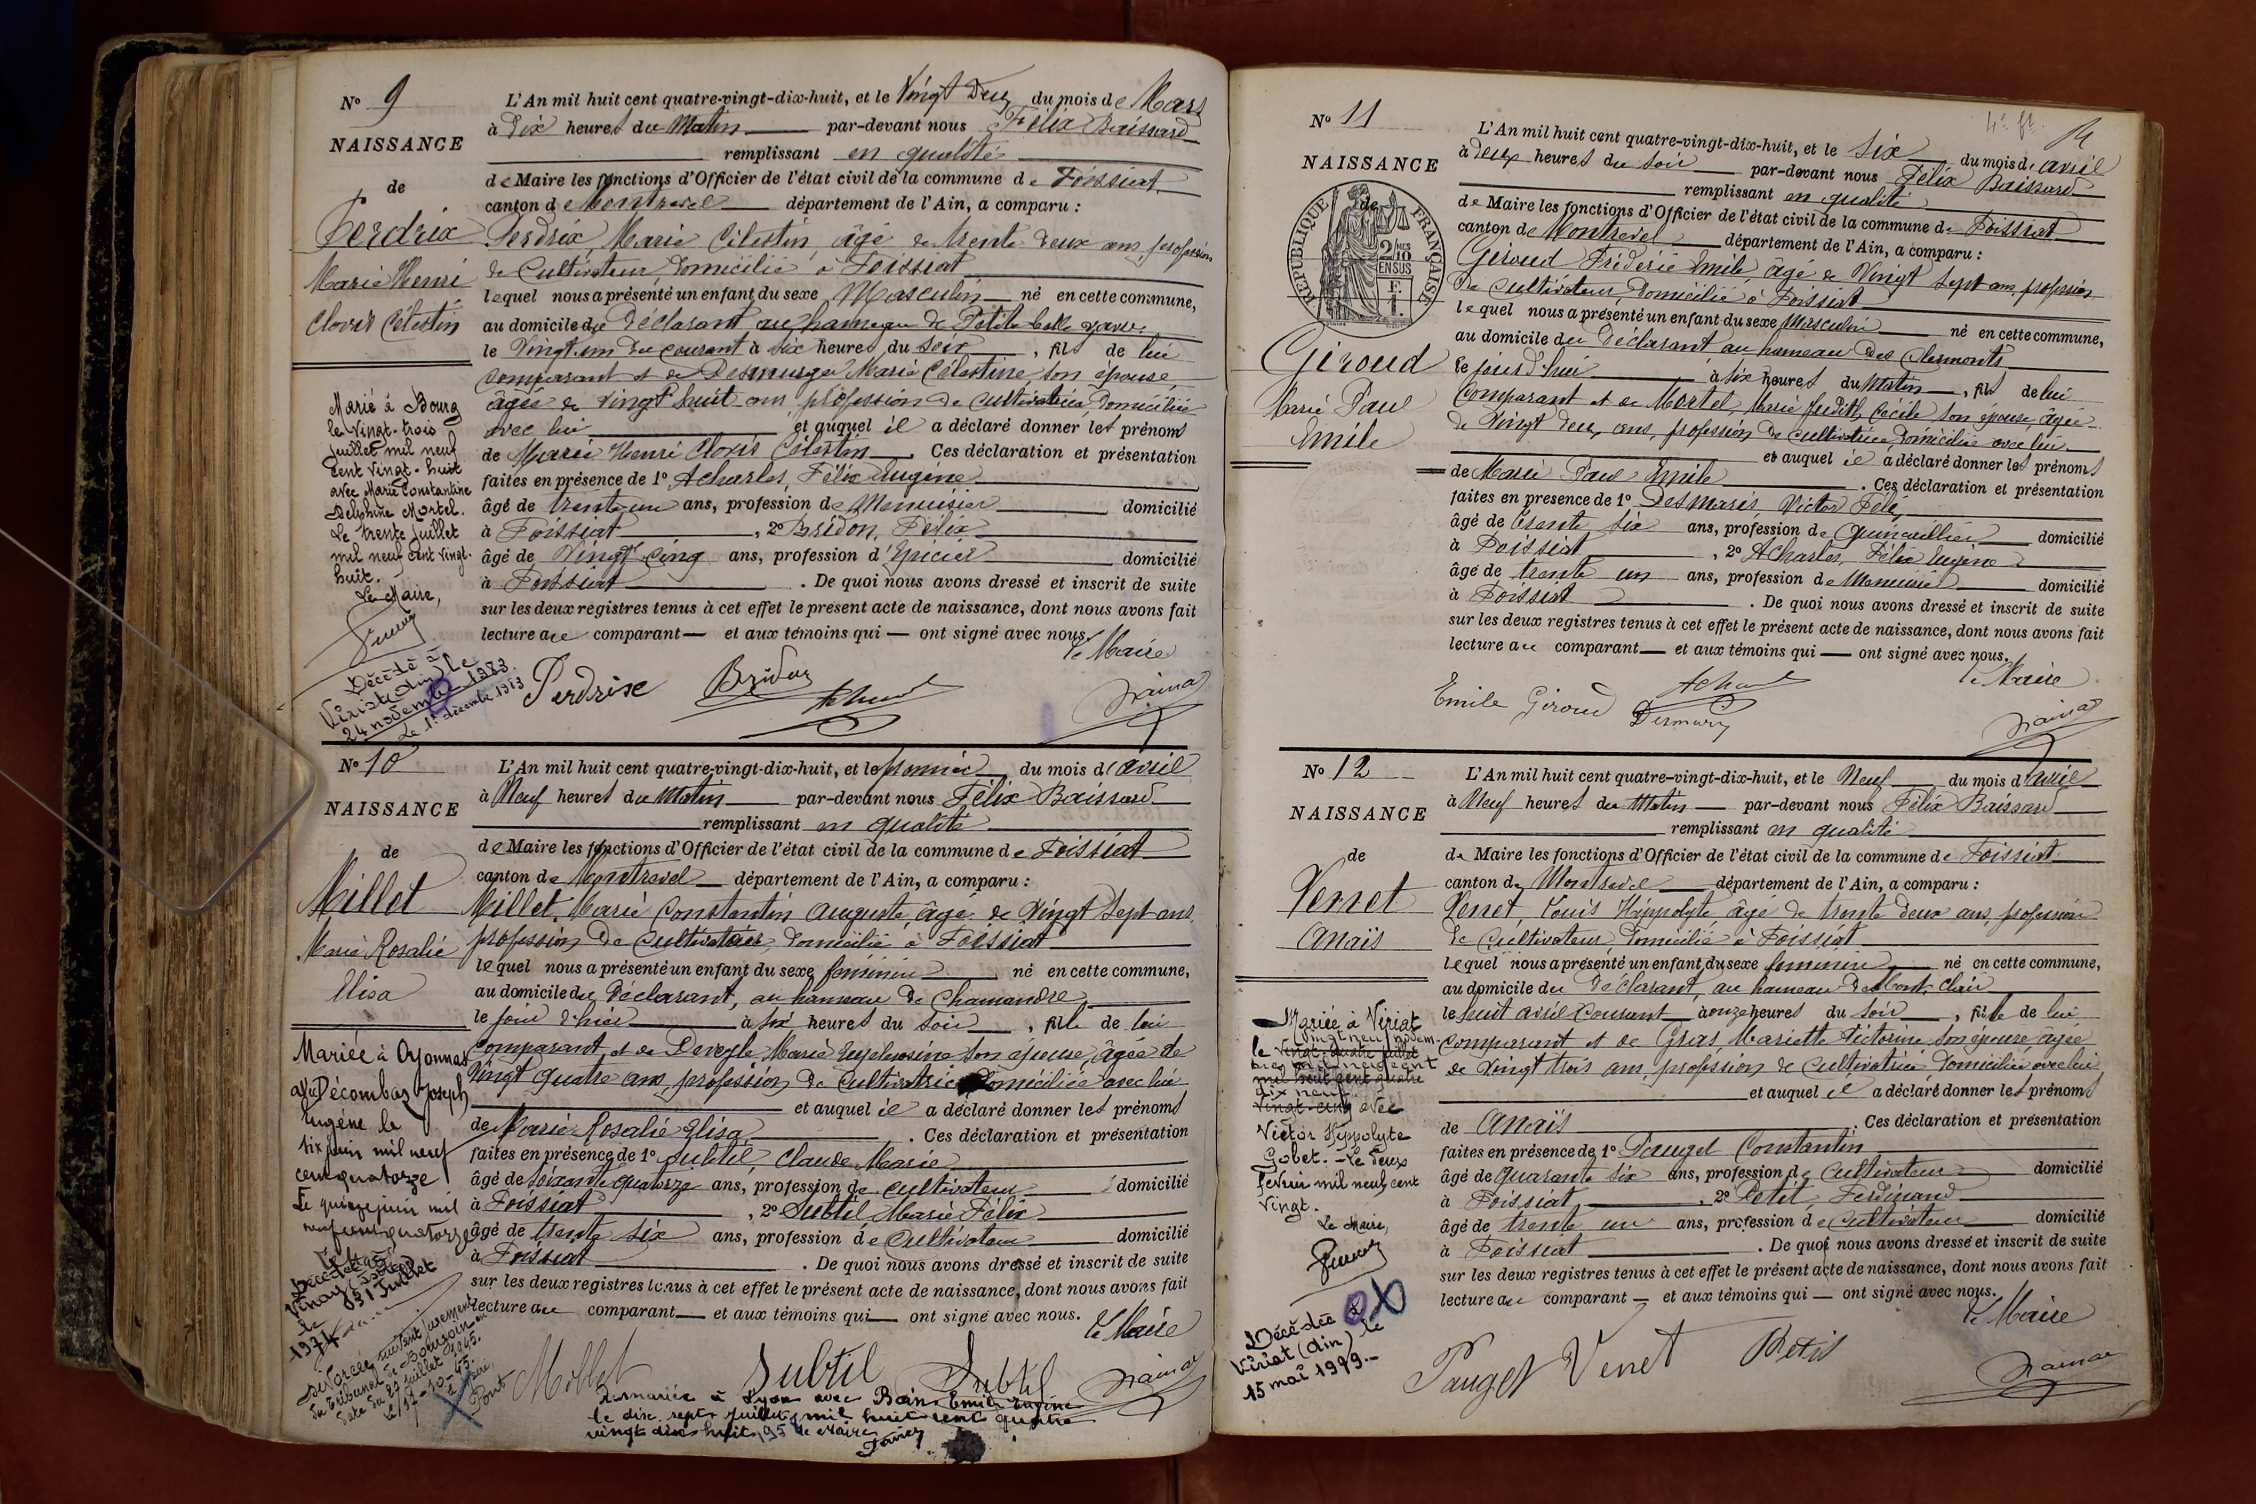 N° 9
NAISSANCE
de
Perdrix
Marie Henri
Clovis Célestin
L'An mil huit cent quatre-vingt-dix-huit, et le Vingt Deux du mois de Mars
à Dix heures du Matin par-devant nous Félix Baissard
remplissant en qualité
de Maire les fonctions d'Officier de l'état civil de la commune de Foissiat
canton de Montrevel département de l'Ain, a comparu :
Perdrix, Marie Célestin, âgé de trente deux ans, profession
de Cultivateur, domicilié à Foissiat
lequel nous a présenté un enfant du sexe Masculin né en cette commune,
au domicile du Déclarant, au hameau de
le Vingt-un du courant à six heures du soir, fils de lui
comparant et de Marie Célestine son épouse
âgée de vingt huit ans, profession de cultivatrice, domiciliée
avec lui et auquel il a déclaré donner les prénoms
de Marie Henri Clovis Célestin. Ces déclaration et présentation
faites en présence de 1° Acharles, Félix Eugène
âgé de trente-un ans, profession de Menuisier domicilié
à Foissiat, 2° Bridon, Félix
âgé de Vingt cinq ans, profession d'Epicier domicilié
à Foissiat. De quoi nous avons dressé et inscrit de suite
sur les deux registres tenus à cet effet le present acte de naissance, dont nous avons fait
lecture au comparant et aux témoins qui ont signé avec nous.
Le Maire
Perdrix Bridon
Marié à Bourg
le vingt-trois
juillet mil neuf
cent vingt-huit
avec Marie Constantine
Delphine Mortel.
Le trente juillet
mil neuf cent vingt-
huit.
Le Maire,
Décédé à
Viriat (Ain) le
24 novembre 1983.
Le 1er décembre 1983
N° 10
NAISSANCE
de
Millet
Marie Rosalie
Elisa
L'An mil huit cent quatre-vingt-dix-huit, et le premier du mois d'avril
à Neuf heures du Matin par-devant nous Félix Baissard
remplissant en qualité
de Maire les fonctions d'Officier de l'état civil de la commune de Foissiat
canton de Montrevel département de l'Ain, a comparu :
Millet, Marie Constantin Auguste, âgé de Vingt Sept ans,
profession de cultivateur domicilié à Foissiat
lequel nous a présenté un enfant du sexe féminin né en cette commune,
au domicile du Déclarant, au hameau de Chamandre
le jour d'hier à six heures du soir, fille de lui
comparant, et de Marie Euphrosine son épouse, âgée de
Vingt quatre ans, profession de Cultivatrice domiciliée avec lui
et auquel il a déclaré donner les prénoms
de Marie Rosalie Elisa. Ces déclaration et présentation
faites en présence de 1° Subtil, Claude Marie
âgé de soixante quatorze ans, profession de cultivateur domicilié
à Foissiat, 2° Subtil Marie Félix
âgé de trente six ans, profession de Cultivateur domicilié
à Foissiat. De quoi nous avons dressé et inscrit de suite
sur les deux registres tenus à cet effet le présent acte de naissance, dont nous avons fait
lecture au comparant et aux témoins qui ont signé avec nous.
Le Maire
Millet Subtil Subtil
Mariée à Oyonnax
avec Décombaz Joseph
Eugène le
six juin mil neuf
cent quatorze
Le quinze juin mil
neuf cent quatorze
Décédée à
Vinay (Isère)
le 31 Juillet
1974
Divorcée suivant jugement
du tribunal de Bourgoin en
date du 25 juillet 1945.
Le 17-10-45.
Remariée à Lyon avec Bain Emile Eugène
le dix sept juillet mil huit cent quatre
vingt dix huit 195 Le Maire
N° 11
NAISSANCE
de
RÉPUBLIQUE FRANÇAISE
2/10
EN SUS
Giroud
Marie Paul
Emile
L'An mil huit cent quatre-vingt-dix-huit, et le six du mois d'avril
à deux heures du soir par-devant nous Félix Baissard
remplissant en qualité
de Maire les fonctions d'Officier de l'état civil de la commune de Foissiat
canton de Montrevel département de l'Ain, a comparu :
Giroud Fréderic Emile, âgé de Vingt Sept ans, profession
de Cultivateur, domicilié à Foissiat
lequel nous a présenté un enfant du sexe Masculin né en cette commune,
au domicile du Déclarant au hameau des Clermonts
le jourd'hui à six heures du Matin, fils de lui
Comparant et de Mortel, Marie Judith Cécile son épouse, âgée
de Vingt deux ans, profession de cultivatrice domiciliée avec lui
et auquel il a déclaré donner les prénoms
de Marie Paul Emile. Ces déclaration et présentation
faites en presence de 1° Desmaris, Victor Félix
âgé de trente six ans, profession de Quincaillier domicilié
à Foissiat, 2° Acharles, Félix Eugène
âgé de trente un ans, profession de Menuisier domicilié
à Foissiat. De quoi nous avons dressé et inscrit de suite
sur les deux registres tenus à cet effet le présent acte de naissance, dont nous avons fait
lecture au comparant et aux témoins qui ont signé avec nous.
Le Maire
Emile Giroud
N° 12
NAISSANCE
de
Venet
Anaïs
L'An mil huit cent quatre-vingt-dix-huit, et le Neuf du mois d'avril
à Neuf heures du Matin par-devant nous Félix Baissard
remplissant en qualité
de Maire les fonctions d'Officier de l'état civil de la commune de Foissiat
canton de Montrevel département de l'Ain, a comparu :
Venet, Louis Hyppolyte, âgé de trente deux ans, profession
de Cultivateur, domicilié à Foissiat
lequel nous a présenté un enfant du sexe feminin né en cette commune,
au domicile du Déclarant, au hameau de Mont Clair
le huit avril courant à onze heures du soir, fille de lui
Comparant et de Gras Mariette Victorine son épouse âgée
de Vingt trois ans, profession de Cultivatrice domiciliée avec lui
et auquel il a déclaré donner les prénoms
de Anaïs. Ces déclaration et présentation
faites en présence de 1° Pauget Constantin
âgé de quarante six ans, profession de Cultivateur domicilié
à Foissiat, 2° Petit Ferdinand
âgé de trente un ans, profession de Cultivateur domicilié
à Foissiat. De quoi nous avons dressé et inscrit de suite
sur les deux registres tenus à cet effet le présent acte de naissance, dont nous avons fait
lecture au comparant et aux témoins qui ont signé avec nous.
Le Maire
Pauget Venet Petit
Mariée à Viriat
le vingt-quatre juillet
vingt-cinq avec
Victor Hyppolyte
Gobet. - Le deux
février mil neuf cent
vingt.
Le Maire,
Décédée à
Viriat (Ain) le
15 mai 1979.-